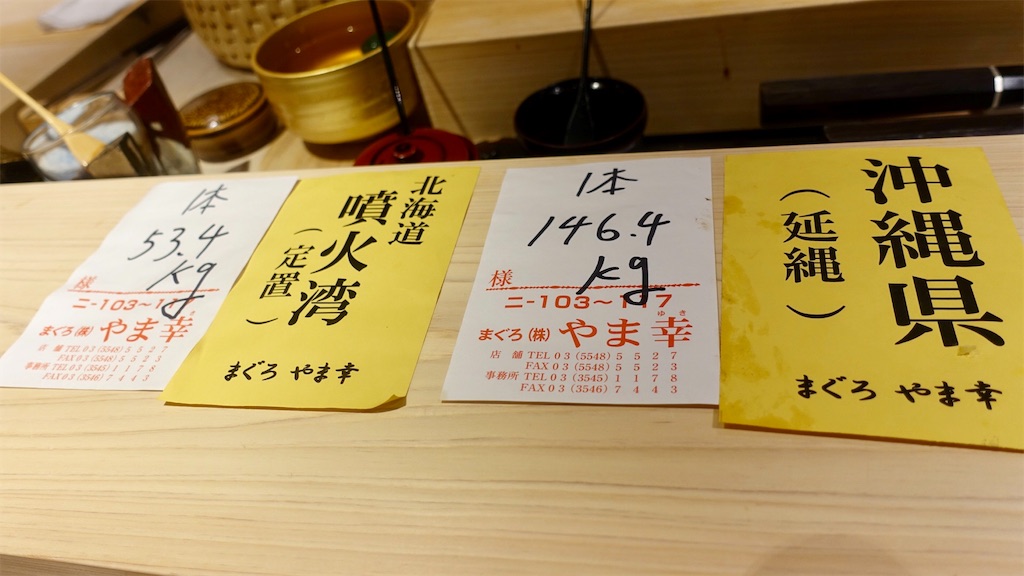 1本
53.4
kg
様
ニ-103~1
まぐろ(株)やま幸
店舗 TEL 03(5548)5527
FAX 03(5548)5523
事務所 TEL 03(3545)1178
FAX 03(3546)7443
北海道
噴火湾
(定置)
まぐろ やま幸
1本
146.4
kg
様
ニ-103~117
ゆき
まぐろ(株)やま幸
店舗 TEL 03(5548)5527
FAX 03(5548)5523
事務所 TEL 03(3545)1178
FAX 03(3546)7443
沖縄県
(延縄)
まぐろ やま幸